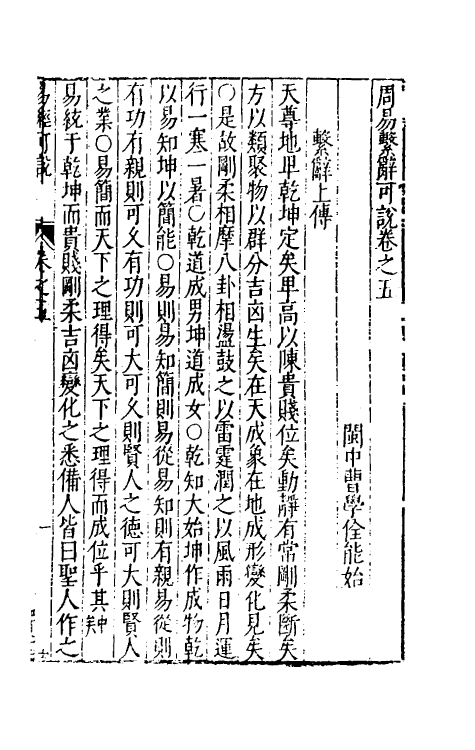 周易繫辭可說卷之五
閩中曹學佺能始
繫辭上傳
天尊地卑乾坤定矣卑高以陳貴賤位矣動靜有常剛柔斷矣
方以類聚物以群分吉凶生矣在天成象在地成形變化見矣
○是故剛柔相摩八卦相盪鼓之以雷霆潤之以風雨日月運
行一寒一暑○乾道成男坤道成女○乾知大始坤作成物乾
以易知坤以簡能○易則易知簡則易從易知則有親易從則
有功有親則可久有功則可大可久則賢人之德可大則賢人
之業○易簡而天下之理得矣天下之理得而成位乎其中矣
易統于乾坤而貴賤剛柔吉凶變化之悉備人皆曰聖人作之
易經可說
卷之五
一